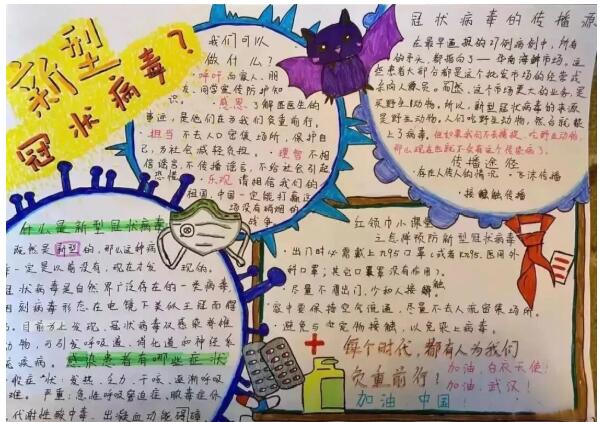 新型
冠状病毒?
我们可以
做什么?
·呼吁 向家人、朋
友、同学宣传防护知
识。
·感恩 了解医医生的
事迹,是他们在为我们负重前行。
·担当 不去人口密集场所,保护自
己,为社会减轻负担。
·理智 不相
信谣言,不传播谣言,不给社会引起
恐慌
·乐观 请相信我们的
祖国,中国一定能打赢这
场没有硝烟的
战争
冠状病毒的传播源
在最早通报的 例病例中,所有
的矛头,都指向了——华南海鲜市场。这
些患者大部分都是这个批发市场的经营或
采购人员。而然,这个市场最大的业务,是
买野生动物,所以,新型冠状病毒的来源
是野生动物。人们吃野生动物,然后就感
上了病毒。但如果我们不去捕捉、吃野生动物,
那么现在也就不会有这个传染病了。
传播途径
·存在人传人的情况 ·飞沫传播
·接触触传播
什么是新型冠状病毒
既然是新型的,那么这种病
毒一定是以前没有,现在才发现的。
冠状病毒是自然界广泛存在的一类病毒,
因则病毒形态在电镜下类似王冠而得
名。目前为止发现,冠状病毒仅感染脊椎
动物,可引发呼吸道、消化道和神经系
统疾病。
感染患者有哪些症状
一般症状:发热、乏力、干咳、逐渐呼吸
困难。 严重:急性呼吸窘迫症、脓毒症休
代谢性酸中毒、出凝血功能障碍。
红领巾小课堂
之怎样预防新型冠状病毒
·出门时必需戴上N95口罩(或者K95、医用外
科口罩,其它口罩 没有作用)。
·尽量不得出门,少和人接触。
家中要保持空气流通,尽量不去人流密集场所。
避免与 宠物接触,以免染上病毒。
每个时代,都有人为我们
负重前行!
加油,白衣天使!
加油,武汉!
加油 中国!